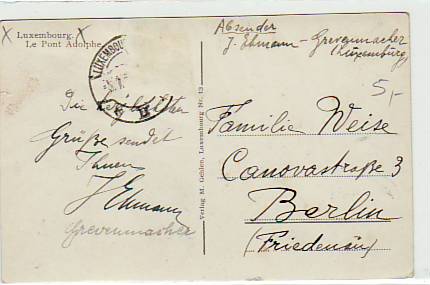 Luxembourg.
Le Pont Adolphe
LUXEMBOU
Absender
J. Ehmann - Grevenmacher
(Luxemburg)
5,-
Die herzlichsten
Grüße sendet
Ihnen
J Ehmann
Grevenmacher
Verlag M. Gehlen, Luxembourg Nr. 13
Familie Weise
Canovastraße 3
Berlin
(Friedenau)